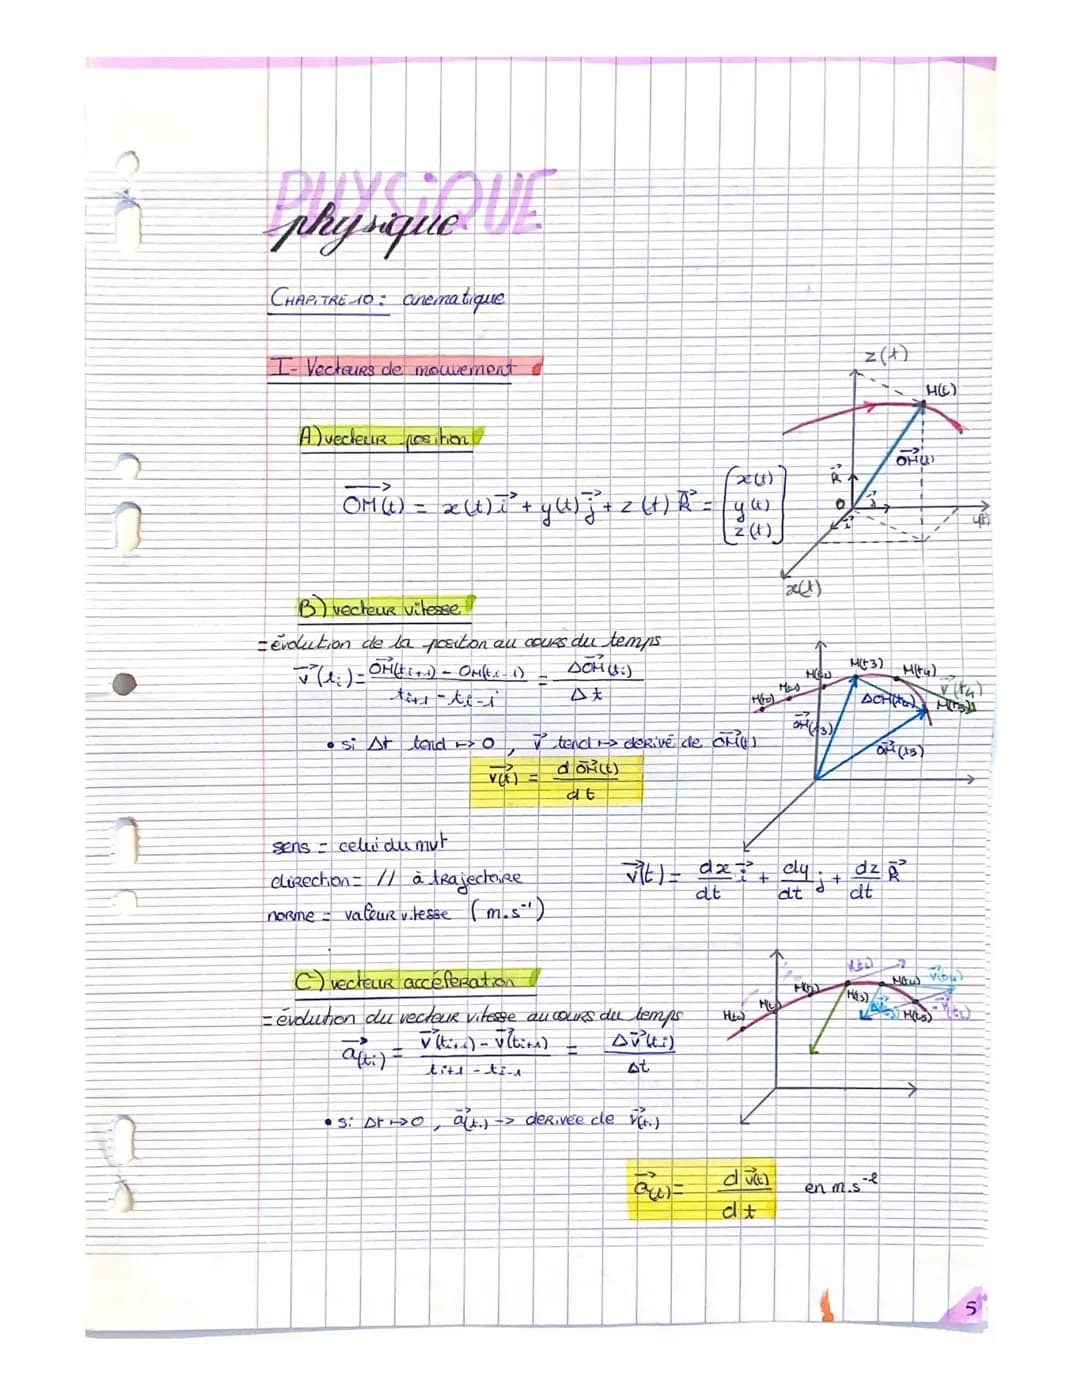 PHYSiQUE
physique
CHAPITRE 10 : cinematique
I- Vecteurs de mouvement
z(t)
M(t)
A) vecteur position
OM(t)
k
OM(t) = x(t) i + y(t) j + z(t) k = [x(t) y(t) z(t)]
O
i
j
y(t)
x(t)
B) vecteur vitesse
= évolution de la positon au cours du temps
v(ti) = OM(ti+1) - OM(ti-1) / ti+1 - ti-1 = ΔOM(ti) / Δt
M(t0)
M(t1)
M(t2)
M(t3)
M(t4)
v(t4)
M(t5)
ΔOM(t4)
OM(t3)
OM(t5)
• si Δt tend ↦ 0, v tend ↦ dérivé de OM(t)
v(t) = d OM(t) / dt
sens = celui du mvt
direction = // à trajectoire
norme = valeur vitesse (m.s⁻¹)
v(t) = dx/dt i + dy/dt j + dz/dt k
C) vecteur accéleration
= évolution du vecteur vitesse au cours du temps
a(ti) = v(ti+1) - v(ti+1) / ti+1 - ti-1 = Δv(ti) / Δt
M(t0)
M(t1)
M(t2)
M(t3)
M(t4)
M(t5)
• si Δt ↦ 0, a(t.) -> derivée de v(t.)
a(t) = d v(t) / dt en m.s⁻²
5